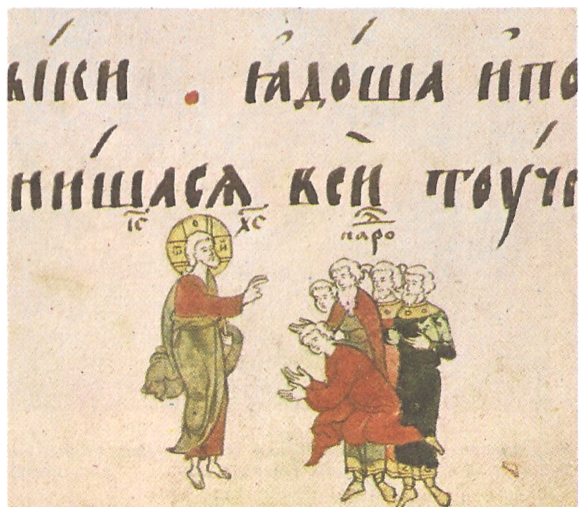 ві́ки . ꙗ҆до́ша и҆по
ни́шасѧ всѝ тоу́ч
і҃с х҃с
нароⷣ